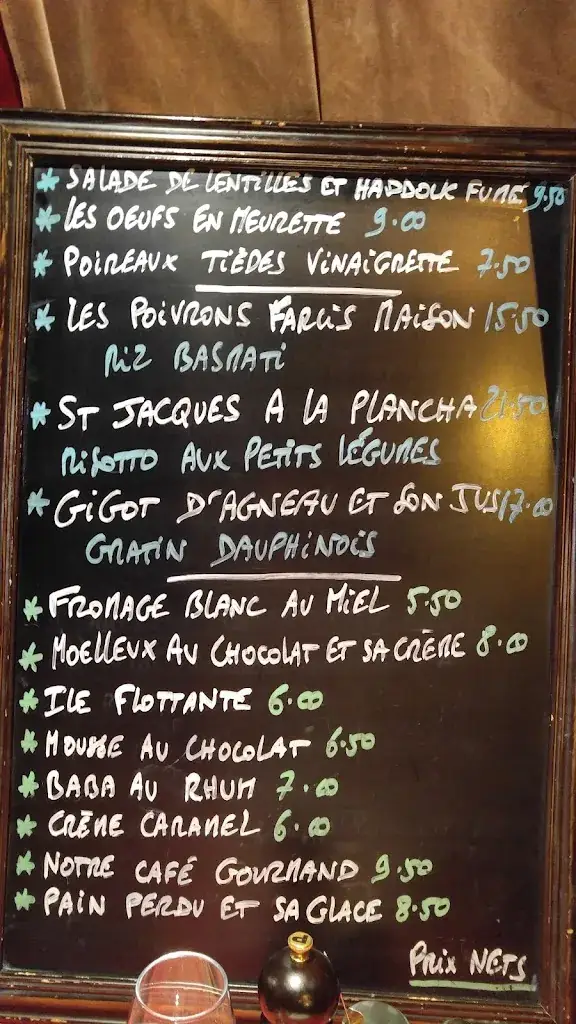 * SALADE DE LENTILLES ET HADDOCK FUMÉ 9.50
* LES OEUFS EN MEURETTE 9.00
* POIREAUX TIÈDES VINAIGRETTE 7.50
* LES POIVRONS FARCIS MAISON 15.50
RIZ BASMATI
* ST JACQUES A LA PLANCHA 21.50
RISOTTO AUX PETITS LÉGUMES
* GIGOT D'AGNEAU ET SON JUS 17.00
GRATIN DAUPHINOIS
* FROMAGE BLANC AU MIEL 5.50
* MOELLEUX AU CHOCOLAT ET SA CRÈME 8.00
* ILE FLOTTANTE 6.00
* MOUSSE AU CHOCOLAT 6.50
* BABA AU RHUM 7.00
* CRÈME CARAMEL 6.00
* NOTRE CAFÉ GOURMAND 9.50
* PAIN PERDU ET SA GLACE 8.50
PRIX NETS